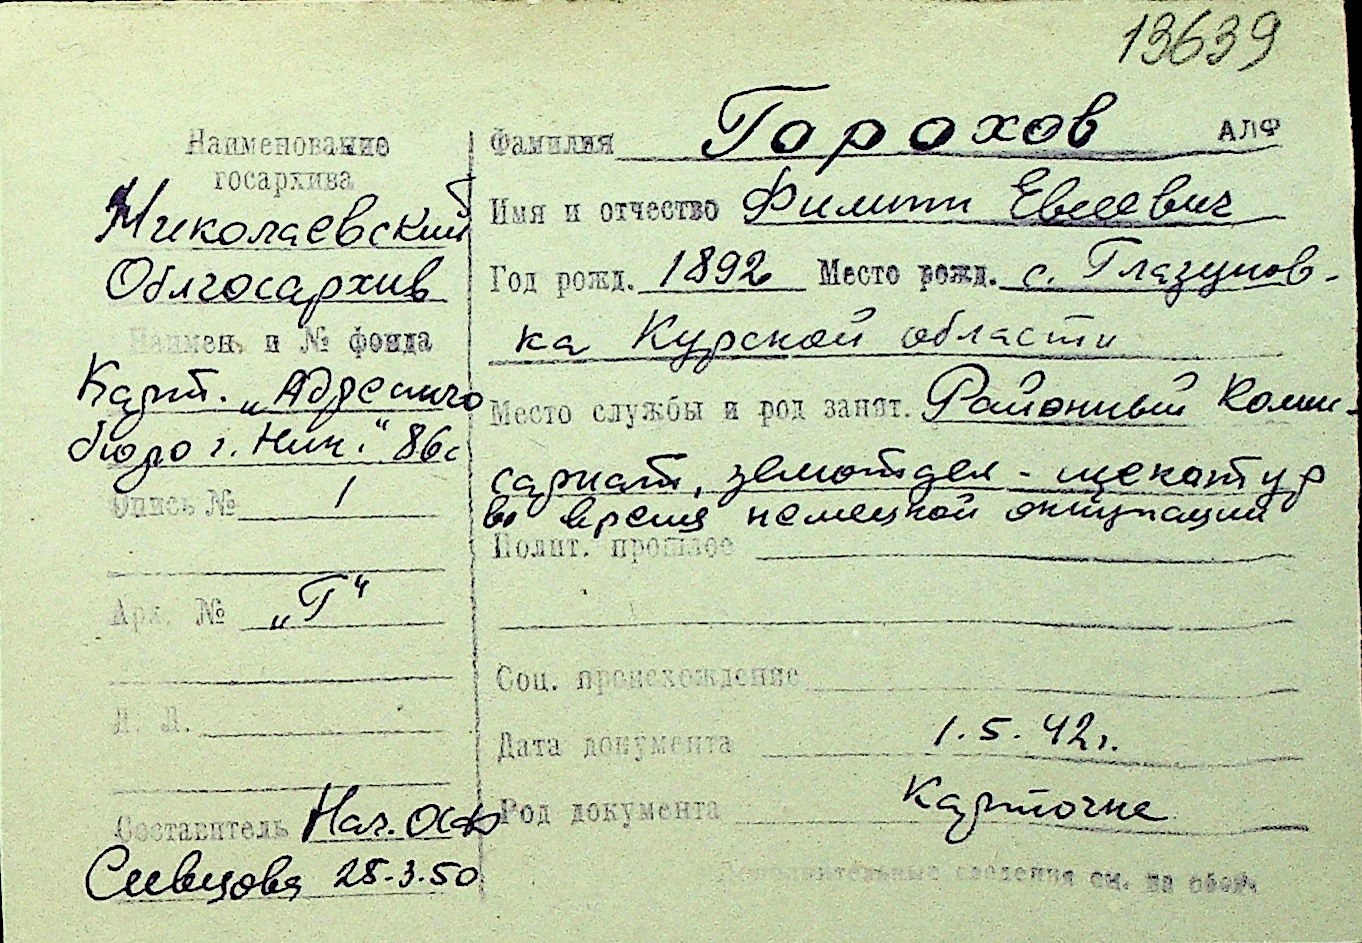 13639
Наименование
госархива
Николаевский
Облгосархив
Наимен. и № фонда
Карт. „Адресного
бюро г. Ник."
Опись № 1
Арх. № „Г"
Л. Л.
Составитель Нач. ОСФ
28.3.50
Фамилия Горохов АЛФ
Имя и отчество Филипп Евсеевич
Год рожд. 1892 Место рожд. с. Глазунов-
ка Курской области
Место службы и род занят. Районный Комис-
сариат, земотдел - щекатур
во время немецкой оккупации
Полит. прошлое
Соц. происхождение
Дата документа 1.5.42г.
Род документа Карточке
Дополнительные сведения см. на обор.